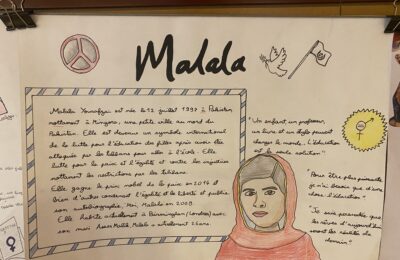 Malala
Malala Yousafzai est née le 12 juillet 1997 à Pakistan
notamment à Mingora, une petite ville au nord du
Pakistan. Elle est devenue un symbole international
de la lutte pour l'éducation des filles après avoir été
attaquée par les talibans pour aller à l'école. Elle
lutte pour la paix et l'égalité et contre les injustices
notamment les restrictions par les talibans.
Elle gagne le prix nobel de la paix en 2014 et
bien d'autres concernant l'égalité et la liberté et publie
son autobiographie, Moi, Malala en 2008.
Elle habite actuellement à Birmingham (Londres) avec
son mari Asser Malik. Malala a actuellement 26 ans.
"Un enfant un professeur,
un livre et un stylo peuvent
changer le monde. L'éducation
est la seule solution"
"Pour être plus puissante
je n'ai besoin que d'une
chose l'éducation"
"Je suis persuadée que
les rêves d'aujourd'hui
seront les réalités de
demain".